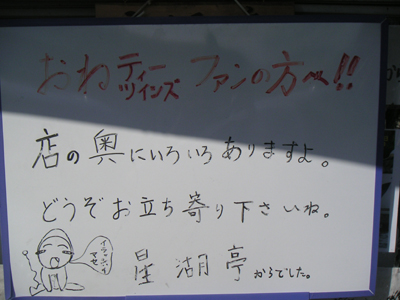 おねティーツインズ ファンの方へ!!
店の奥にいろいろありますよ。
どうぞお立ち寄り下さいね。
イラッシャイマセ
星湖亭からでした。